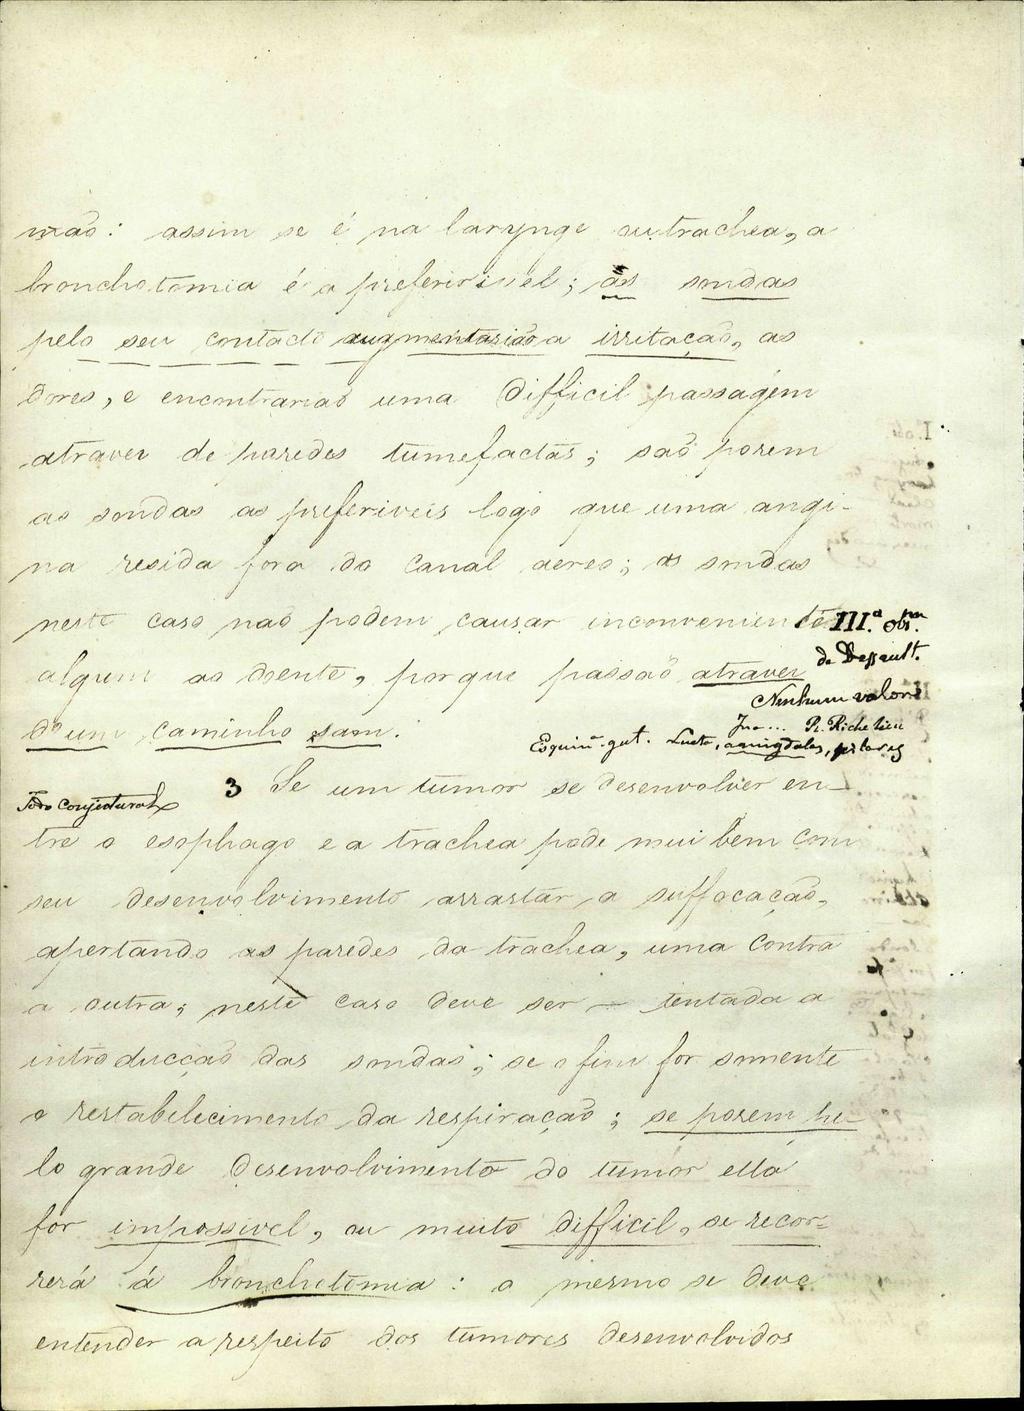 mão: assim se é na larynge ou trachea, a
bronchotomia é a preferivel; as sondas
pelo seu contacto augmentarião a irritação, as
dores, e encontrarião uma difficil passagem
atravez de paredes tumefactas; são porem
as sondas as preferiveis logo que uma angi-
na resida fora do canal aereo; as sondas
neste caso não podem causar inconveniente
III.ª obs.
algum ao doente, porque passão atravez
de Dessault.
Nenhum valor
d'um caminho sam.
P. Richelieu
amigdalas, pilares
3 Se um tumor se desenvolver en-
Todo conjectural
tre o esophago e a trachea pode mui bem com
seu desenvolvimento arrastar a suffocação,
apertando as paredes da trachea, uma contra
a outra; neste caso deve ser tentada a
introducção das sondas; se o fim for somente
o restabelecimento da respiração; se porem pe-
lo grande desenvolvimento do tumor ella
for impossivel, ou muito difficil, se recor-
rerá á bronchotomia: o mesmo se deve
entender a respeito dos tumores desenvolvidos